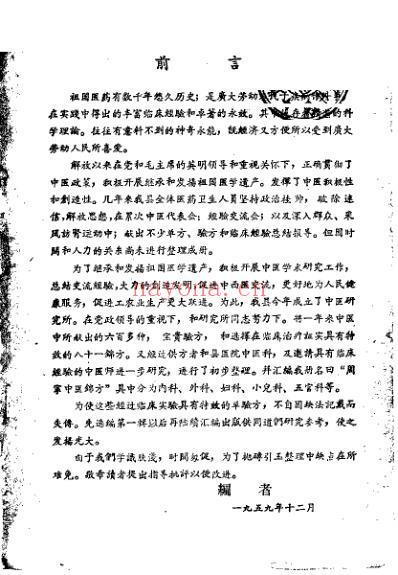 前言
祖国医药有数千年悠久历史；是廣大劳动
在实践中得出的丰富临床經驗和卓著的永效。其 存 的科
学理論。往往有意料不到的神奇永能，既經济又方便所以受到廣大
劳动人民所喜爱。
解放以来在党和毛主席的英明領导和重视关怀下，正确貫彻了
中医政策，积极开展继承和发揚祖国医学遗产。发揮了中医积极性
和創造性。几年来我县全体医药卫生人員坚持政治挂帅，破除迷
信，解放思想，在累次中医代表会；經验交流会；以及深入群众、采
风訪賢运动中；献出不少单方、驗方和临床經驗总結报导。但因时
間和人力的关系尚未进行整理成册。
为了继承和发揚祖国医学遗产，积极开展中医学术研究工作，
总結交流經驗，大力的創造发明，促进中西医交流，更好地为人民健
康服务，促进工农业生产更大跃进。为此，我县今年成立了中医研
究所。在党政領导的重视下，和研究所同志努力下。将一年来中医
中所献出的六百多种，宝貴驗方，和选擇在临床治疗証实具有特
效的八十一綿方。又經过供方者和县医院中医科，及邀請具有临床
經驗的中医师进一步研究，进行了初步整理。并汇编成册名曰"周
寧中医錦方"其中分为内科、外科、妇科、小兒科、五官科等。
为使这些經过临床实驗具有特效的单驗方，不自因缺法記載而
失傳。先选编第一輯以后再陸續汇编出版供同道們研究参考，使之
发揚光大。
由于我們学識浅，时間匆促，为了抛磚引玉整理中缺点在所
难免。敬希讀者提出指导批評以便改进。
編者
一九五九年十二月
nayona.cn